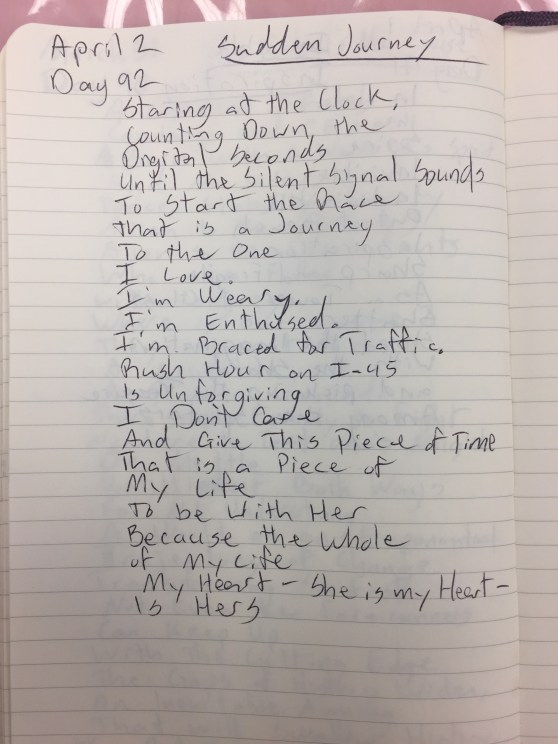 April 2 Sudden Journey
Day 92
Staring at the Clock,
Counting Down, the
Digital Seconds
Until the Silent Signal Sounds
To Start the Race
That is a Journey
To the One
I Love.
I'm Weary.
I'm Enthused.
I'm Braced for Traffic.
Rush Hour on I-45
Is Unforgiving
I Don't Care
And Give This Piece of Time
That is a Piece of
My Life
To be With Her
Because the Whole
of My Life
My Heart - She is my Heart -
Is Hers